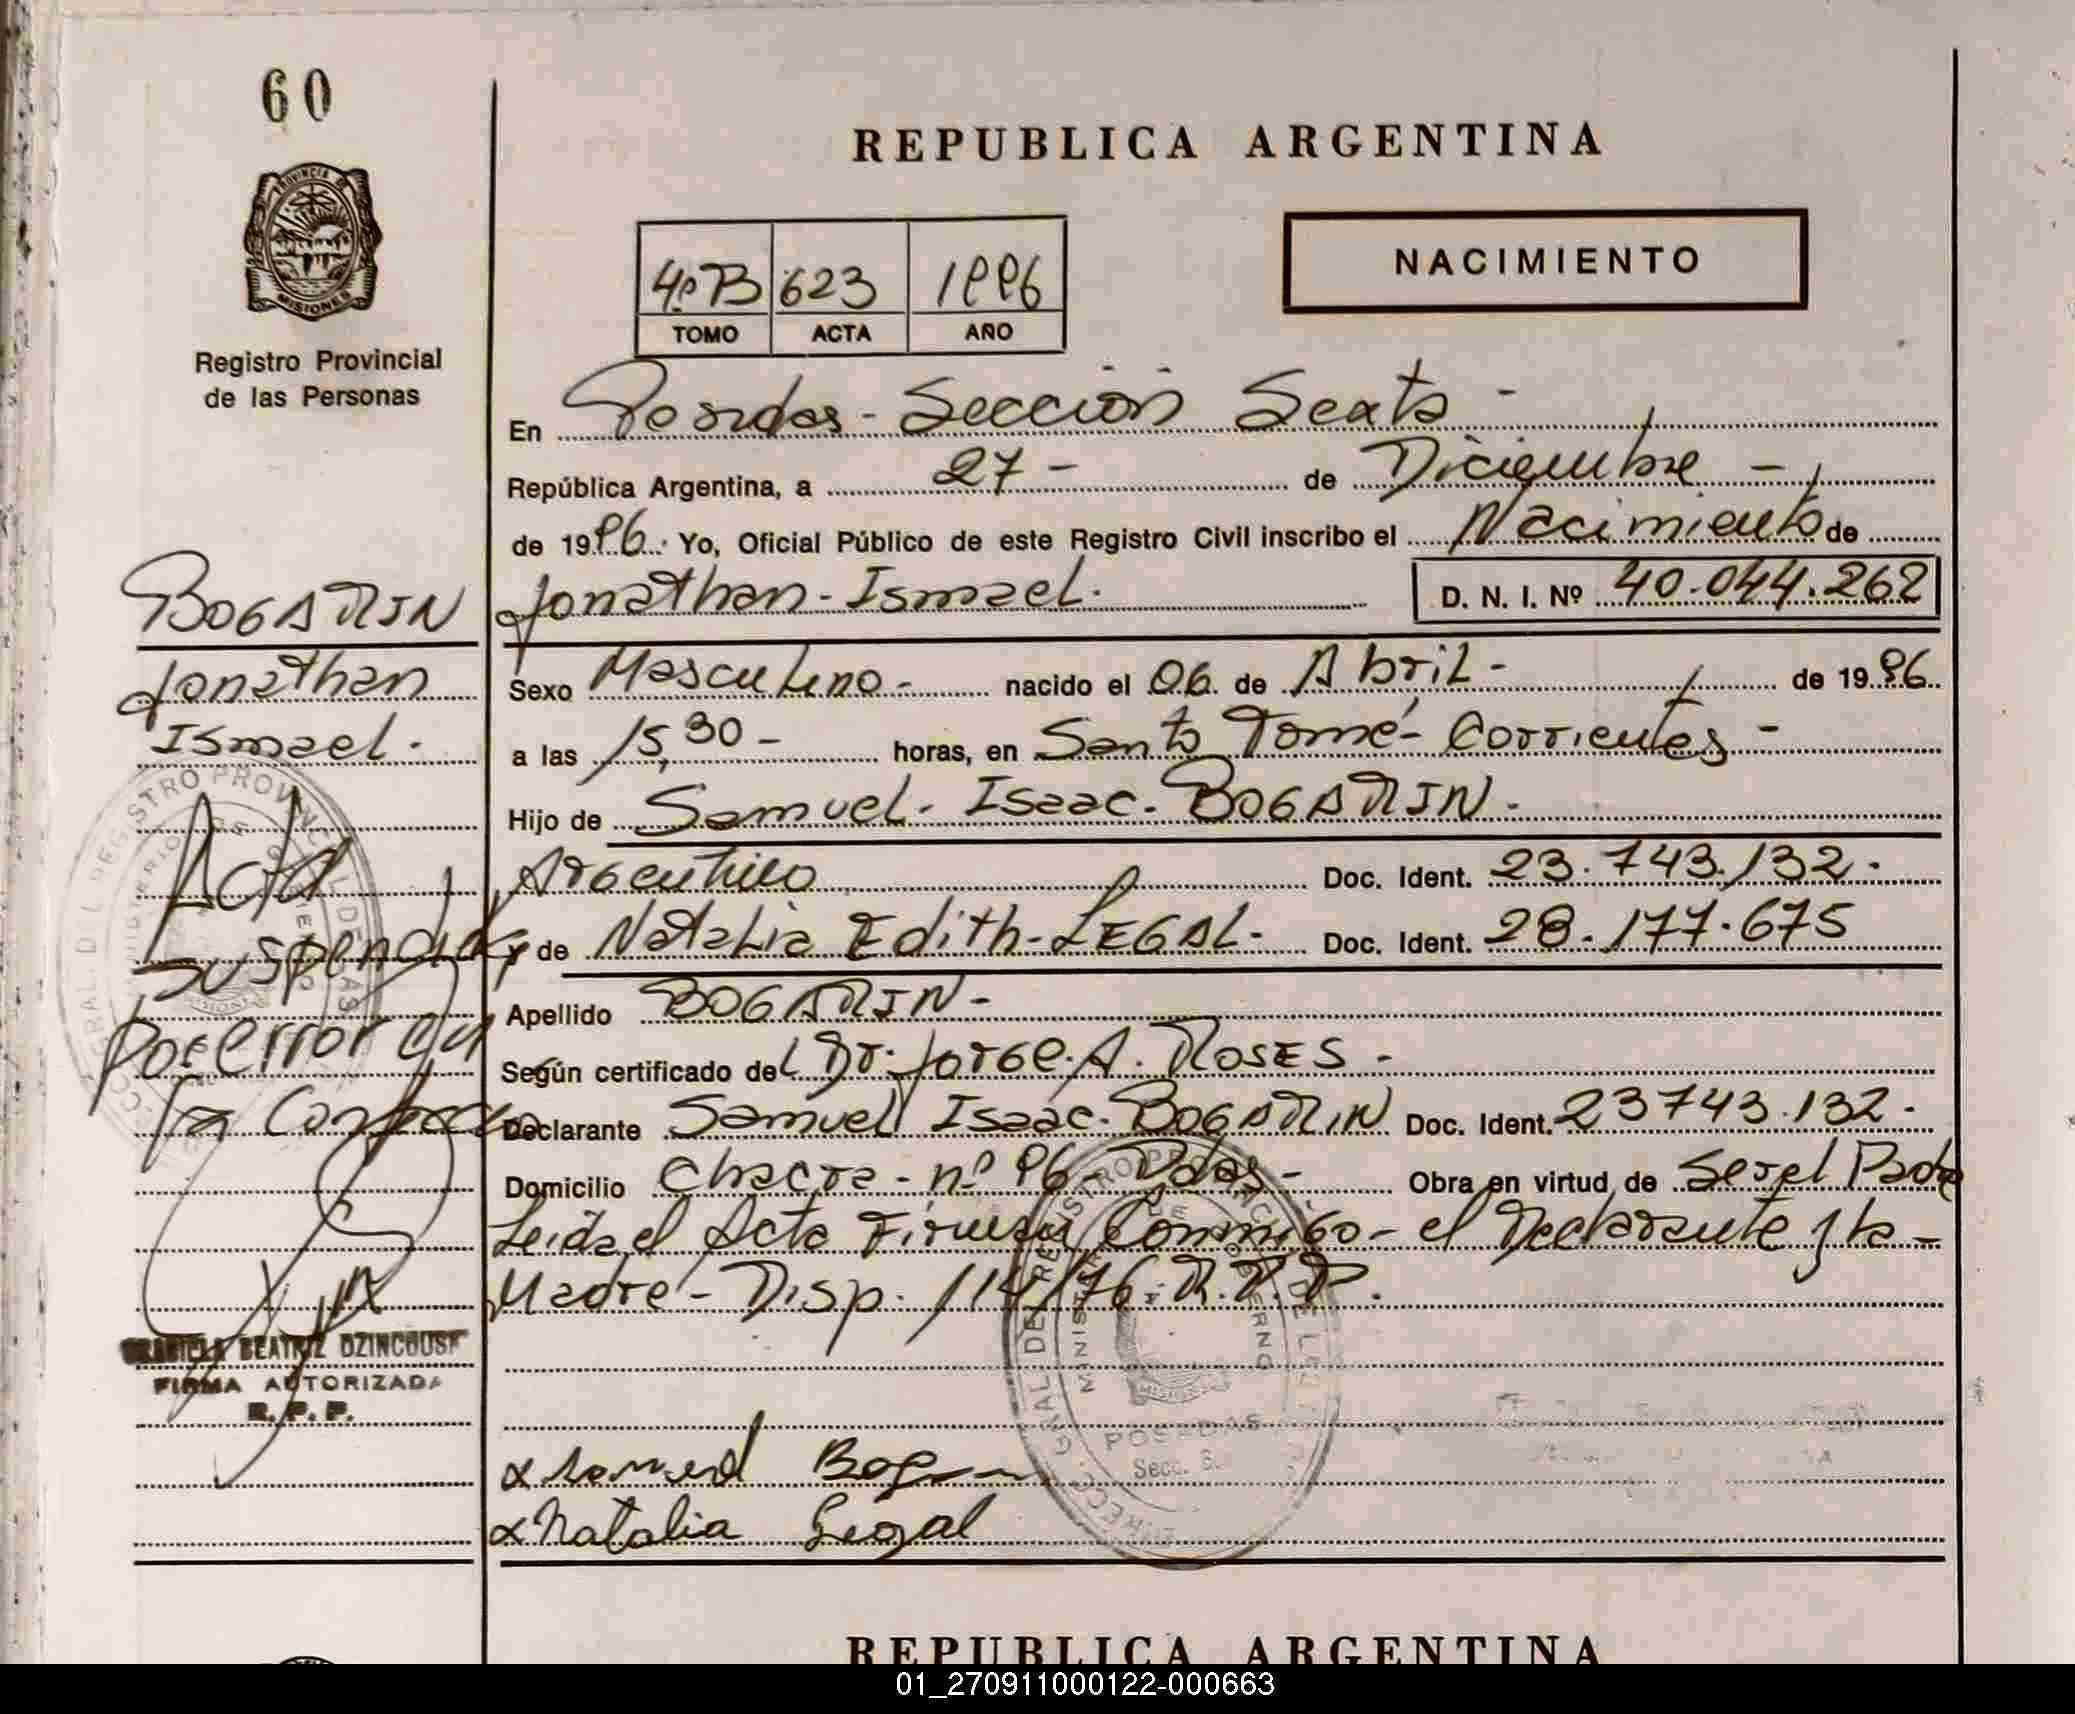 60
PROVINCIA DE
MISIONES
Registro Provincial
de las Personas
BOGARIN
Jonathan
Ismael.
Acta
Suspendida
por error en
la Confección
BEATRIZ DZINCOUSK
FIRMA AUTORIZADA
R. P. P.
REPUBLICA ARGENTINA
NACIMIENTO
4º B 623 1996
TOMO ACTA AÑO
En Posadas - Sección Sexta -
República Argentina, a 27 - de Diciembre -
de 1996. Yo, Oficial Público de este Registro Civil inscribo el Nacimiento de
Jonathan - Ismael. D. N. I. Nº 40.044.262
Sexo Masculino - nacido el 06 de Abril - de 1996
a las 15,30 - horas, en Santo Tomé - Corrientes -
Hijo de Samuel - Isaac - BOGARIN -
Argentino Doc. Ident. 23.743.132 -
y de Natalia Edith - LEGAL - Doc. Ident. 28.177.675
Apellido BOGARIN -
Según certificado del Dr. Jorge A. ROSES -
Declarante Samuel Isaac - BOGARIN Doc. Ident. 23743.132 -
Domicilio Chacra - nº 96 - Pdas - Obra en virtud de Ser el Padre
Leida el Acta Firman Conmigo - el Declarante y la -
Madre - Disp. 114/76. R.P.P.
POSADAS
Secc. 6
x Samuel
x Natalia Legal
REPUBLICA ARGENTINA
01_270911000122-000663